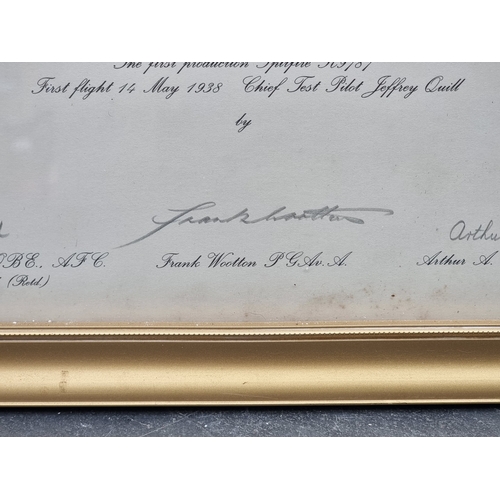 The first production Spitfire K9787
First flight 14 May 1938 Chief Test Pilot Jeffrey Quill
by
Frank Wootton
Arthu
OBE., AFC. Frank Wootton P.G.Av.A. Arthur A.
(Retd)